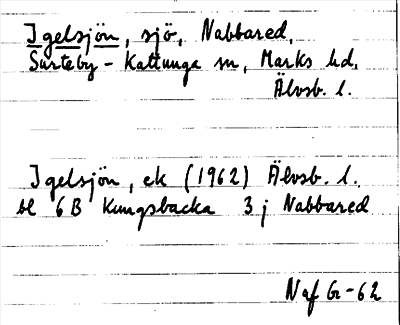 Igelsjön, sjö, Nabbared,
Surteby-Kattunga sn, Marks hd,
Älvsb. l.
Igelsjön, ek (1962) Älvsb. l.
bl 6B Kungsbacka 3j Nabbared
Naf Gr-62